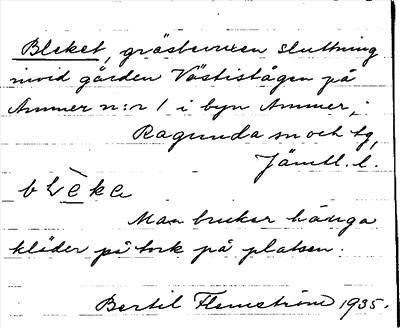 Bleket, gräsbevuxen sluttning
invid gården Västistågen på
Ammer n:r 1 i byn Ammer,
Ragunda sn och tg,
Jämtl. l.
Man brukar hänga
kläder på tork på platsen.
Bertil Flemström 1935.